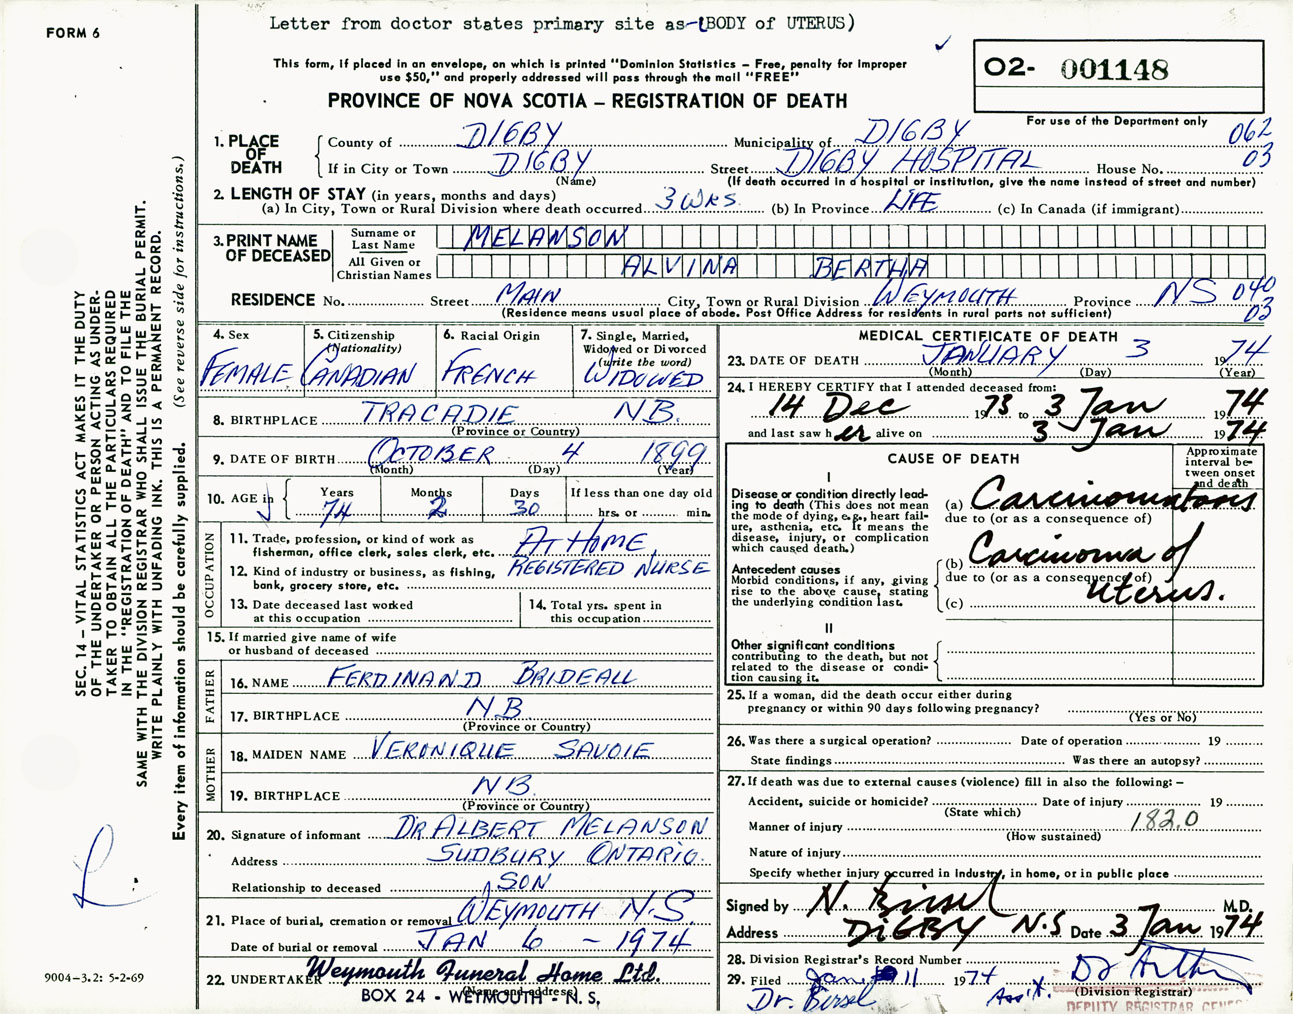 FORM 6
Letter from doctor states primary site as-(BODY of UTERUS)
This form, if placed in an envelope, on which is printed "Dominion Statistics – Free, penalty for improper
use $50," and properly addressed will pass through the mail "FREE"
PROVINCE OF NOVA SCOTIA – REGISTRATION OF DEATH
02- 001148
For use of the Department only
062
03
1. PLACE OF DEATH
County of DIGBY Municipality of DIGBY
If in City or Town DIGBY Street DIGBY HOSPITAL House No.
(Name) (If death occurred in a hospital or institution, give the name instead of street and number)
2. LENGTH OF STAY (in years, months and days)
(a) In City, Town or Rural Division where death occurred 3 WKS. (b) In Province LIFE (c) In Canada (if immigrant)
3. PRINT NAME OF DECEASED
Surname or Last Name MELANSON
All Given or Christian Names ALVINA BERTHA
RESIDENCE No. Street MAIN City, Town or Rural Division WEYMOUTH Province NS 040
03
(Residence means usual place of abode. Post Office Address for residents in rural parts not sufficient)
4. Sex
FEMALE
5. Citizenship
(Nationality)
CANADIAN
6. Racial Origin
FRENCH
7. Single, Married,
Widowed or Divorced
(write the word)
WIDOWED
8. BIRTHPLACE TRACADIE N.B.
(Province or Country)
9. DATE OF BIRTH OCTOBER 4 1899
(Month) (Day) (Year)
10. AGE in
Years Months Days If less than one day old
74 2 30 hrs. or min.
OCCUPATION
11. Trade, profession, or kind of work as
fisherman, office clerk, sales clerk, etc. AT HOME,
12. Kind of industry or business, as fishing, REGISTERED NURSE
bank, grocery store, etc.
13. Date deceased last worked
at this occupation
14. Total yrs. spent in
this occupation
15. If married give name of wife
or husband of deceased
FATHER
16. NAME FERDINAND BRIDEALL
17. BIRTHPLACE N.B.
(Province or Country)
MOTHER
18. MAIDEN NAME VERONIQUE SAVOIE
19. BIRTHPLACE N.B.
(Province or Country)
20. Signature of informant DR ALBERT MELANSON
Address SUDBURY ONTARIO.
Relationship to deceased SON
21. Place of burial, cremation or removal WEYMOUTH N.S.
Date of burial or removal JAN 6 – 1974
22. UNDERTAKER Weymouth Funeral Home Ltd.
(Name and address)
BOX 24 - WEYMOUTH - N. S,
MEDICAL CERTIFICATE OF DEATH
23. DATE OF DEATH JANUARY 3 1974
(Month) (Day) (Year)
24. I HEREBY CERTIFY that I attended deceased from:
14 Dec 1973 to 3 Jan 1974
and last saw her alive on 3 Jan 1974
CAUSE OF DEATH
Approximate
interval be-
tween onset
and death
I
Disease or condition directly lead-
ing to death (This does not mean
the mode of dying, e.g., heart fail-
ure, asthenia, etc. It means the
disease, injury, or complication
which caused death.)
(a) Carcinomatosis
due to (or as a consequence of)
Antecedent causes
Morbid conditions, if any, giving
rise to the above cause, stating
the underlying condition last.
(b) Carcinoma of
due to (or as a consequence of)
(c) Uterus.
II
Other significant conditions
contributing to the death, but not
related to the disease or condi-
tion causing it.
25. If a woman, did the death occur either during
pregnancy or within 90 days following pregnancy?
(Yes or No)
26. Was there a surgical operation? Date of operation 19
State findings Was there an autopsy?
27. If death was due to external causes (violence) fill in also the following: –
Accident, suicide or homicide? Date of injury 19
(State which)
Manner of injury 182.0
(How sustained)
Nature of injury
Specify whether injury occurred in Industry, in home, or in public place
Signed by N. Birsel M.D.
Address DIGBY N.S Date 3 Jan 1974
28. Division Registrar's Record Number
29. Filed Jan 11 1974
Dr. Birsel
Ass't.
(Division Registrar)
DEPUTY REGISTRAR GENE
SEC. 14 – VITAL STATISTICS ACT MAKES IT THE DUTY
OF THE UNDERTAKER OR PERSON ACTING AS UNDER-
TAKER TO OBTAIN ALL THE PARTICULARS REQUIRED
IN THE "REGISTRATION OF DEATH" AND TO FILE THE
SAME WITH THE DIVISION REGISTRAR WHO SHALL ISSUE THE BURIAL PERMIT.
WRITE PLAINLY WITH UNFADING INK. THIS IS A PERMANENT RECORD.
Every item of information should be carefully supplied. (See reverse side for instructions.)
9004–3.2: 5-2-69